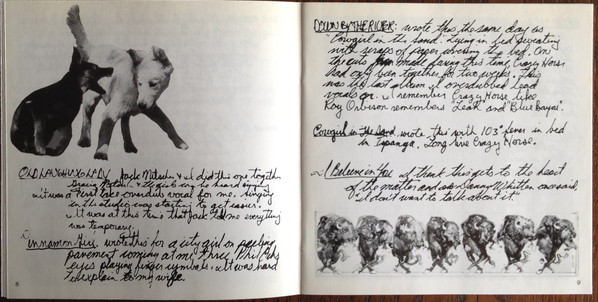 OLD LAUGHING LADY Jack Nitzsche & I did this one together
Graham Nash & the girls may be heard singing
it was a first take overdub vocal for me. singing
in the studio was starting to get easier.
It was at this time that Jack told me everything
was temporary.
Cinnamon Girl. wrote this for a city girl on peeling
pavement coming at me thru Phil Ochs
eyes playing finger cymbals. It was hard
to explain to my wife.
8
DOWN BY THE RIVER: wrote this the same day as
"Cowgirl in the sand" lying in bed sweating
with scraps of paper covering the bed. On
the cuts made during this time, Crazy Horse
had only been together for two weeks. This
was the last album I overdubbed lead
vocals on. I remember Crazy Horse like
Roy Orbison remembers "Leah" and "Blue Bayou".
Cowgirl in the Sand. wrote this with 103° fever in bed
in Topanga. Long live Crazy Horse.
I Believe in You I think this gets to the heart
of the matter and as Danny Whitten once said,
I don't want to talk about it.
9